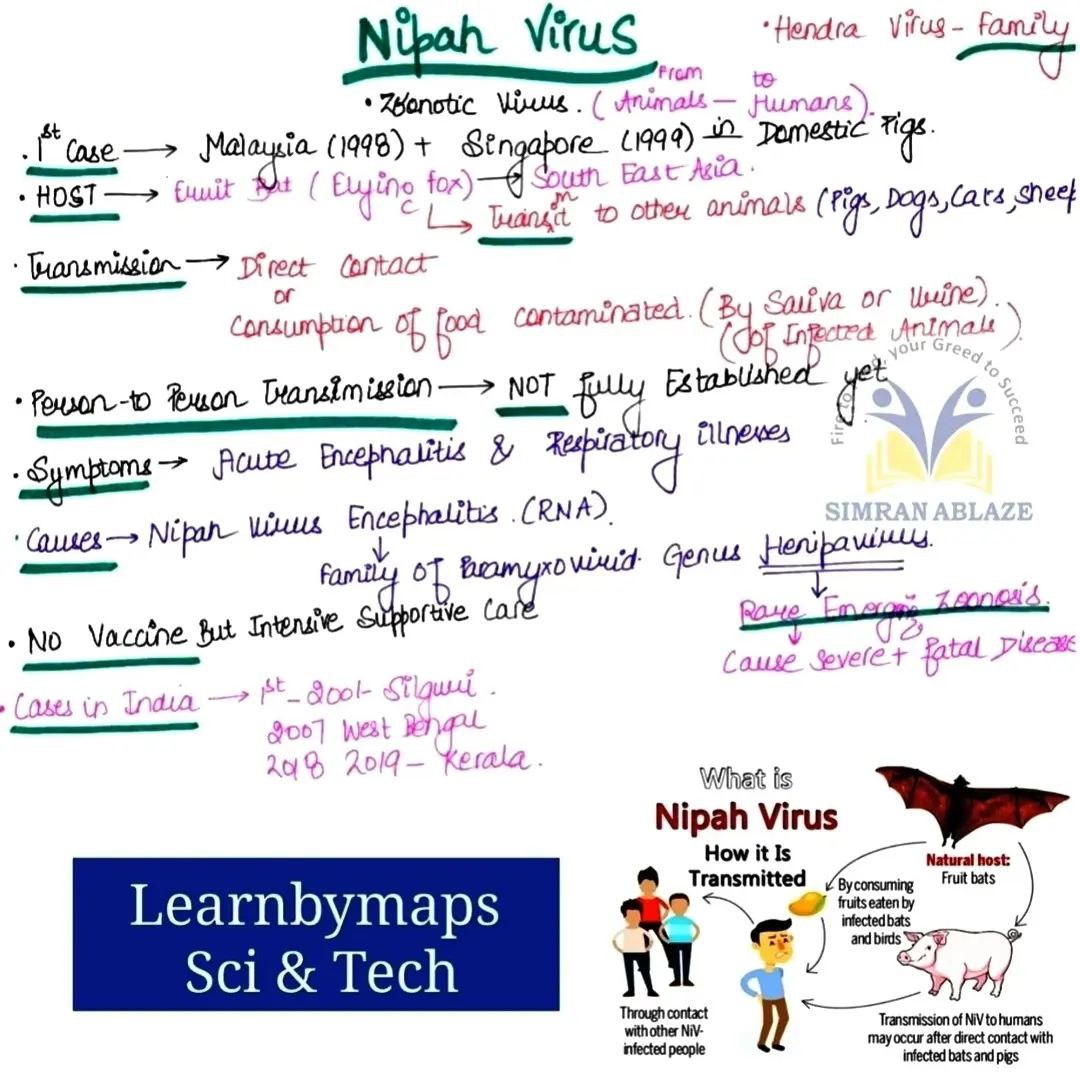 Nipah Virus
• Hendra Virus - Family
• Zoonotic Virus. (From Animals — to Humans).
• 1st Case → Malaysia (1998) + Singapore (1999) in Domestic Pigs.
• HOST → Fruit Bat (Flying fox) → South East Asia.
Transmit to other animals (Pigs, Dogs, Cats, Sheep
• Transmission → Direct Contact
or
Consumption of food contaminated. (By Saliva or Urine).
(of Infected Animals).
• Person-to Person Transimission → NOT fully Established yet
• Symptoms → Acute Encephalitis & Respiratory illnesses
• Causes → Nipah Virus Encephalitis. (RNA).
Family of Paramyxovirid. Genus Henipavirus.
Rare Emerging Zoonosis.
Cause Severe + fatal Disease
• No Vaccine But Intensive Supportive Care
• Cases in India → 1st - 2001- Siliguri.
2007 West Bengal
2018 2019 - Kerala.
your Greed to Succeed
SIMRAN ABLAZE
Learnbymaps
Sci & Tech
What is
Nipah Virus
How it Is
Transmitted
Natural host:
Fruit bats
By consuming
fruits eaten by
infected bats
and birds
Through contact
with other NiV-
infected people
Transmission of NiV to humans
may occur after direct contact with
infected bats and pigs